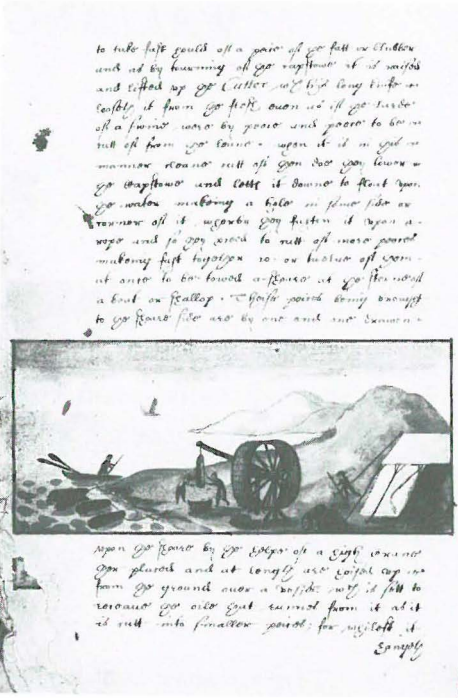 to take fast hould of a peice of ye fatt or Blubber
and as by tourning of ye capstowe it is raised
and lifted up ye Cutter wth his long knife
looseth it from ye flesh even as if ye larde
of a swine were by peece and peece to be
cutt off from ye leane. when it is in ys
manner cleane cutt off then doe they lower
ye capstowe and lett it downe to float upon
ye water makeing a hole in some side or
corner of it wherby they fasten it upon a
rope and so they proceed to cutt off more peeces
makeing fast together 10. or twelve of them
at once to be towed ashoare at ye sterne of
a boat or shallop. Theise peices being brought
to ye shoare side are by one and one drawen
upon ye shoare by ye helpe of a high crane
ther placed and at length are hoised up
from ye ground over a vessell wch is sett to
receave ye oile that runneth from it as it
is cutt into smaller peices: for whilest it
hangeth